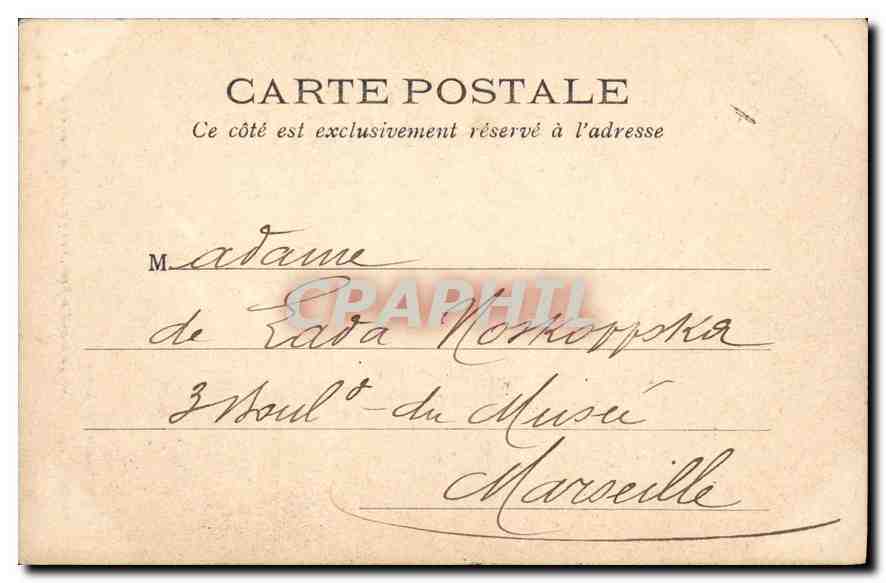 CARTE POSTALE
Ce côté est exclusivement réservé à l'adresse
Madame
CPAPHIL
de Lada Noskoppska
3 Boulᵈ du Musée
Marseille